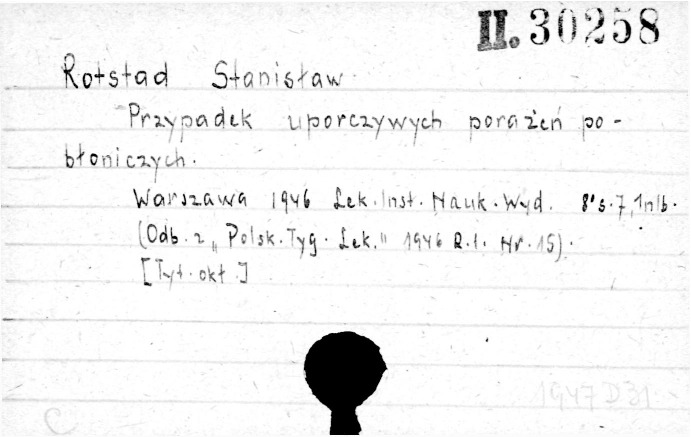 II. 30258
Rotstad Stanisław
Przypadek uporczywych porażeń po-
błoniczych.
Warszawa 1946 Lek. Inst. Nauk. Wyd. 8° s. 7, 1nlb.
(Odb. z „Polsk. Tyg. Lek." 1946 R. 1. Nr. 15).
[Tyt. okł.]
1947 D 31
C